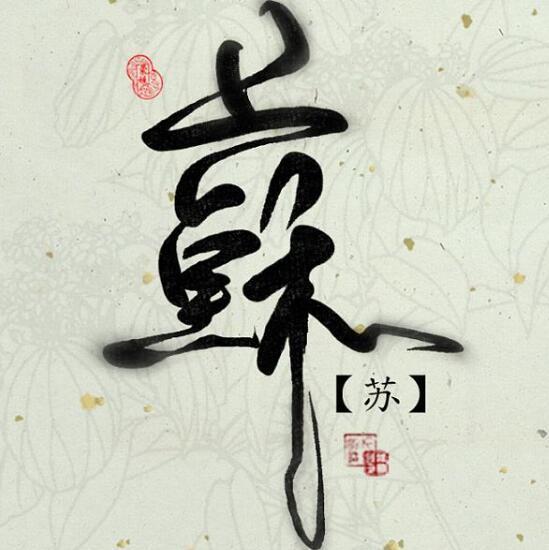 蘇
【苏】